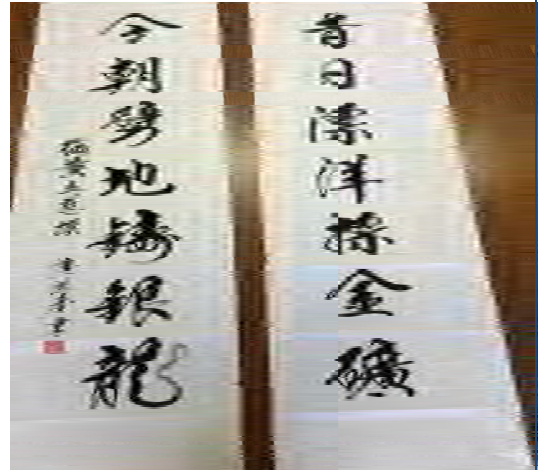 昔日漂洋採金礦
今朝劈地鑄銀龍